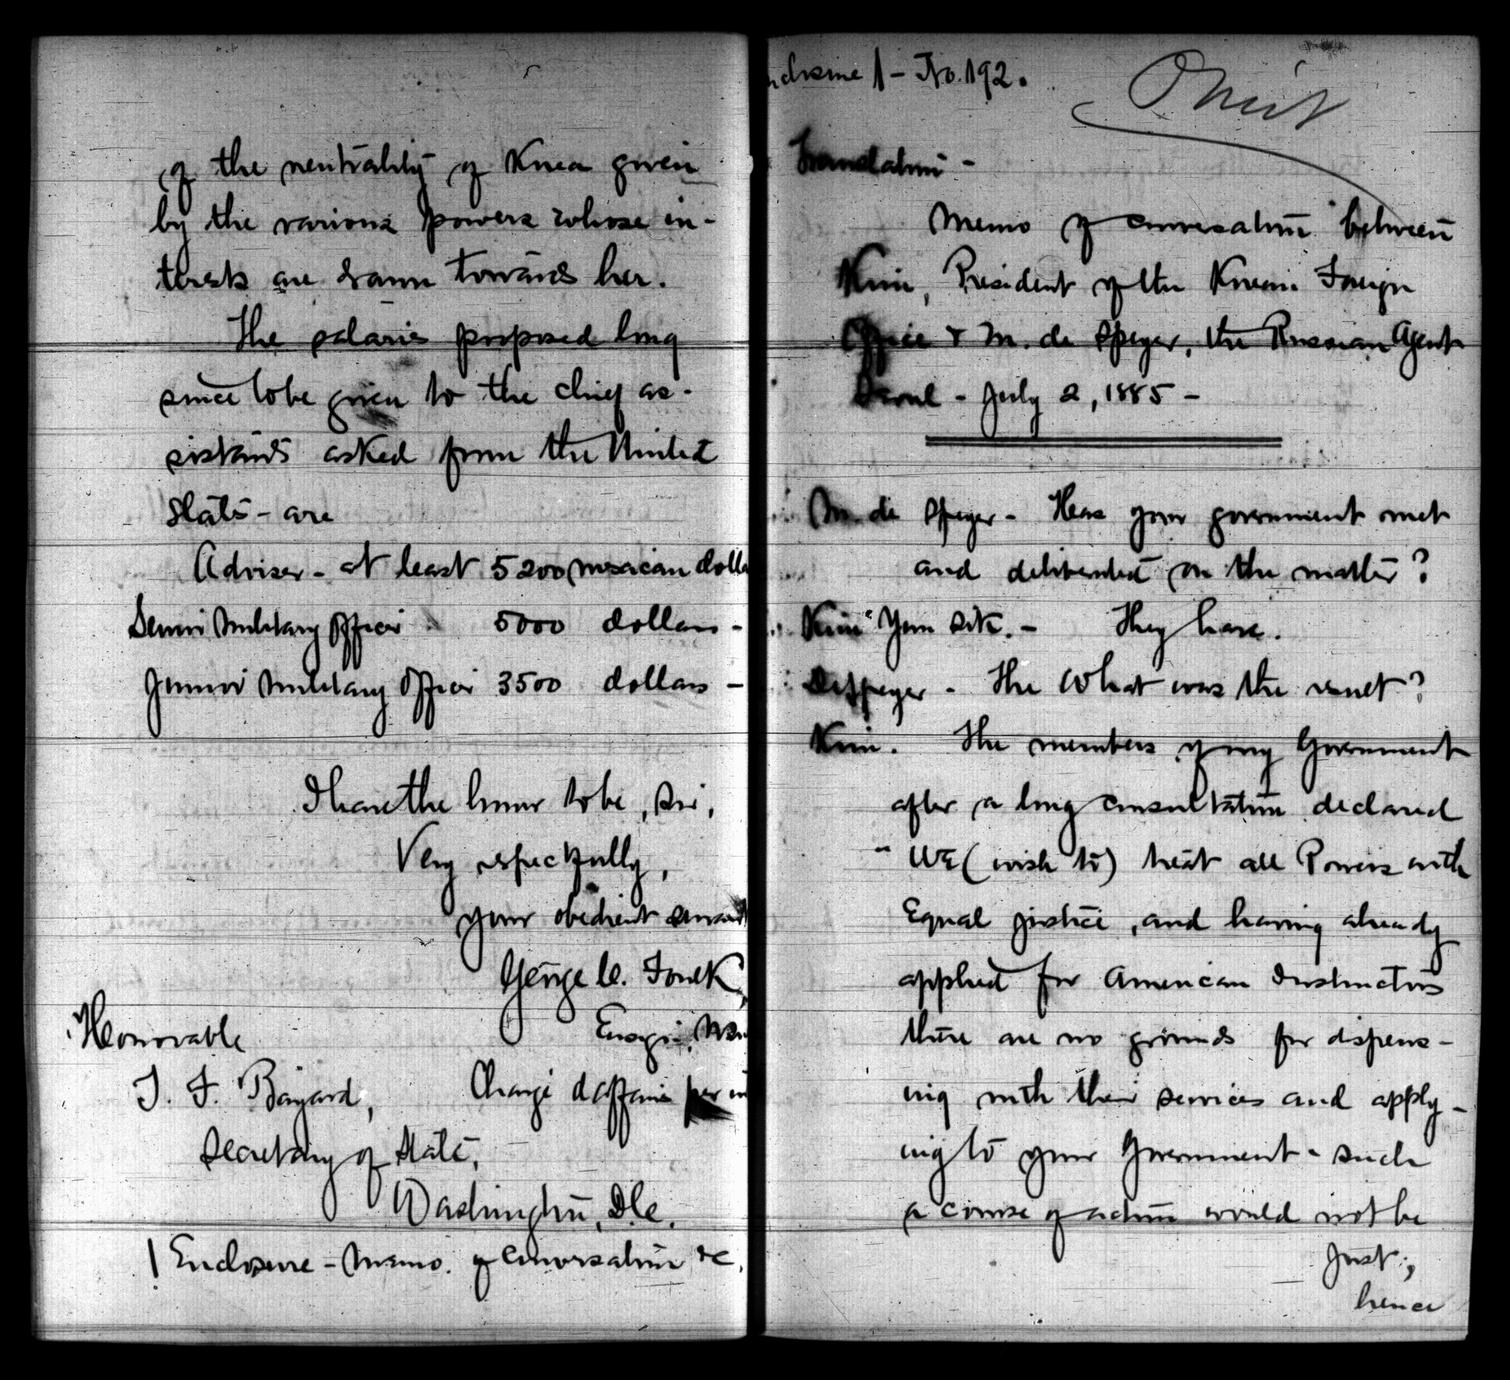 of the neutrality of Korea given
by the various powers whose in-
terests are drawn towards her.
The salaries proposed long
since to be given to the chief as-
sistants asked from the United
States - are
Adviser - at least 5200 mexican dolla
Senior Military Officer 5000 dollars -
Junior Military Officer 3500 dollars -
I have the honor to be, Sir,
Very respectfully,
your obedient servant
George C. Foulk,
Ensign,
Honorable
Chargé d'affaires per in
T. F. Bayard,
Secretary of State,
Washington, D.C.
1 Enclosure - Memo. of Conversation &c.
nclosure 1 - No. 192.
Omit
Translation -
Memo of conversation between
Kim, President of the Korean Foreign
Office & M. de Speyer, the Russian Agent
Seoul - July 2, 1885 -
M. de Speyer - Has your government met
and deliberated on the matter?
Kim Yun Sik. - They have.
De Speyer - The What was the result?
Kim. The members of my Government
after a long consultation declared
"We (wish to) treat all Powers with
Equal justice, and having already
applied for American Instructors
there are no grounds for dispens-
ing with their services and apply-
ing to your Government - such
a course of action would not be
just;
hence